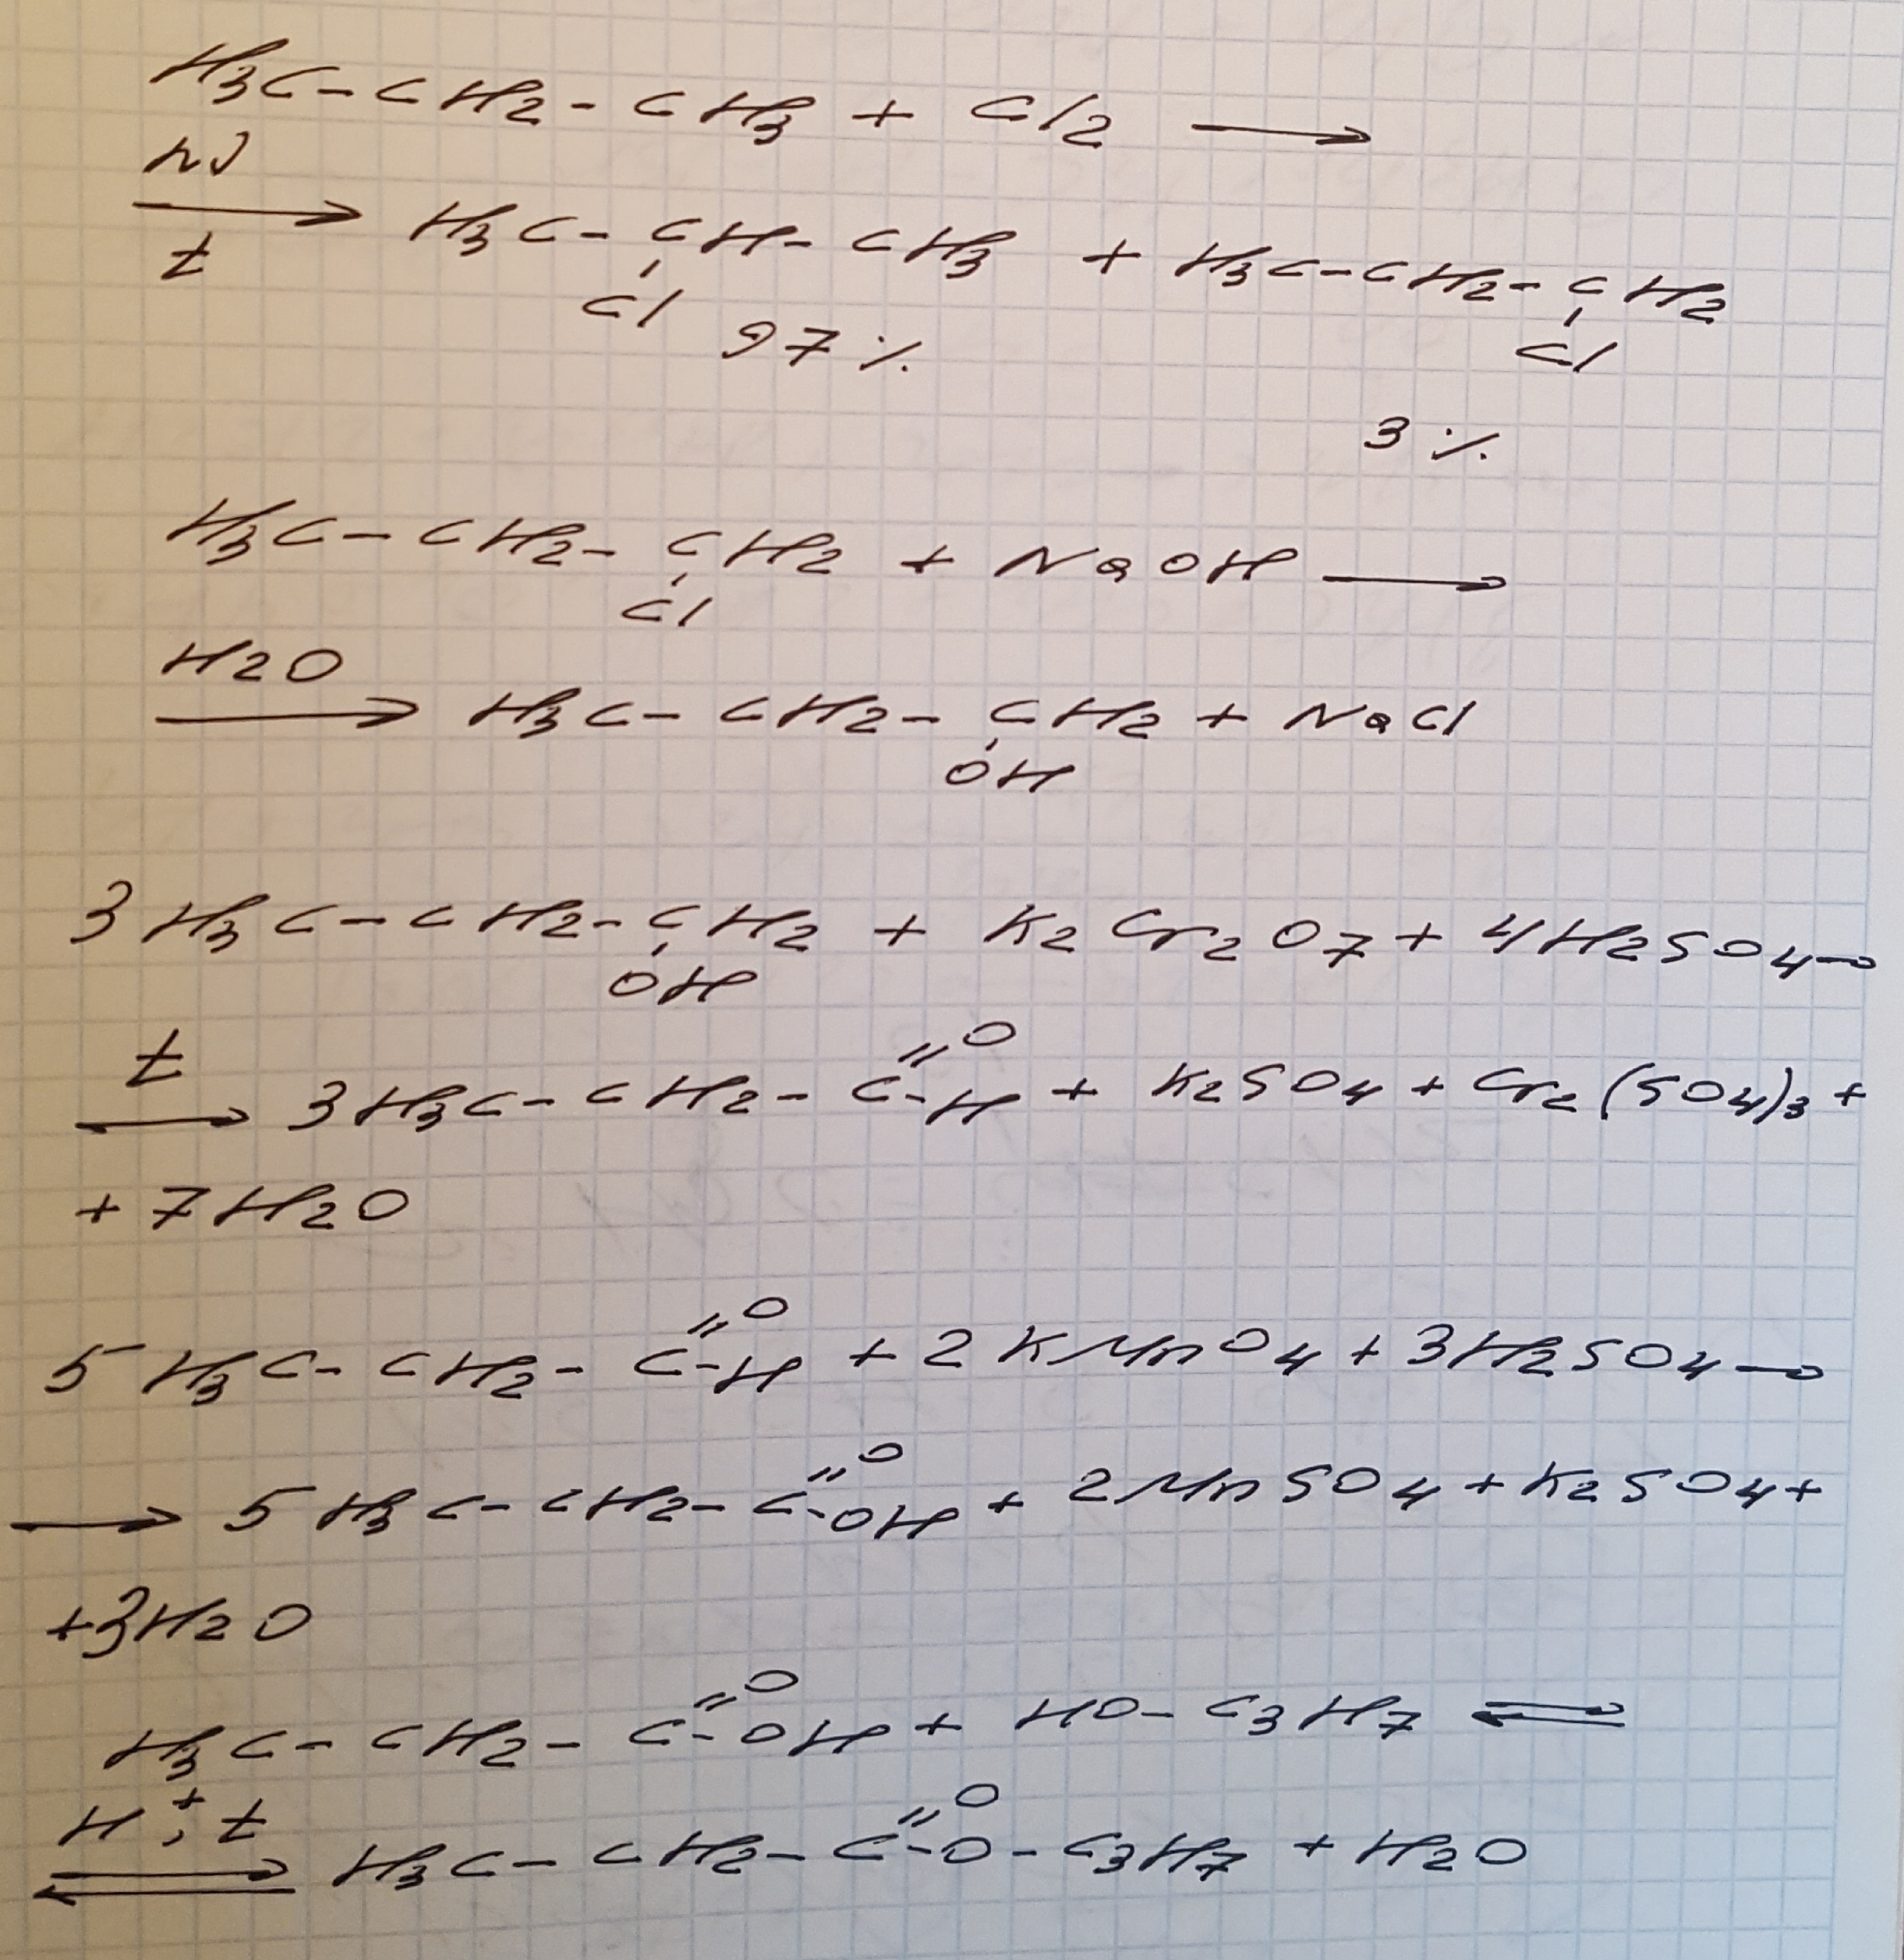 H3C-CH2-CH3 + Cl2 →
hν
→ H3C-CH-CH3 + H3C-CH2-CH2
t
Cl Cl
97% 
3%
H3C-CH2-CH2 + NaOH →
Cl
H2O
→ H3C-CH2-CH2 + NaCl
OH
3H3C-CH2-CH2 + K2Cr2O7 + 4H2SO4 →
OH
t
→ 3H3C-CH2-C(=O)-H + K2SO4 + Cr2(SO4)3 +
+ 7H2O
5H3C-CH2-C(=O)-H + 2KMnO4 + 3H2SO4 →
→ 5H3C-CH2-C(=O)-OH + 2MnSO4 + K2SO4 +
+3H2O
H3C-CH2-C(=O)-OH + HO-C3H7 ⇌
H+, t
⇌ H3C-CH2-C(=O)-O-C3H7 + H2O